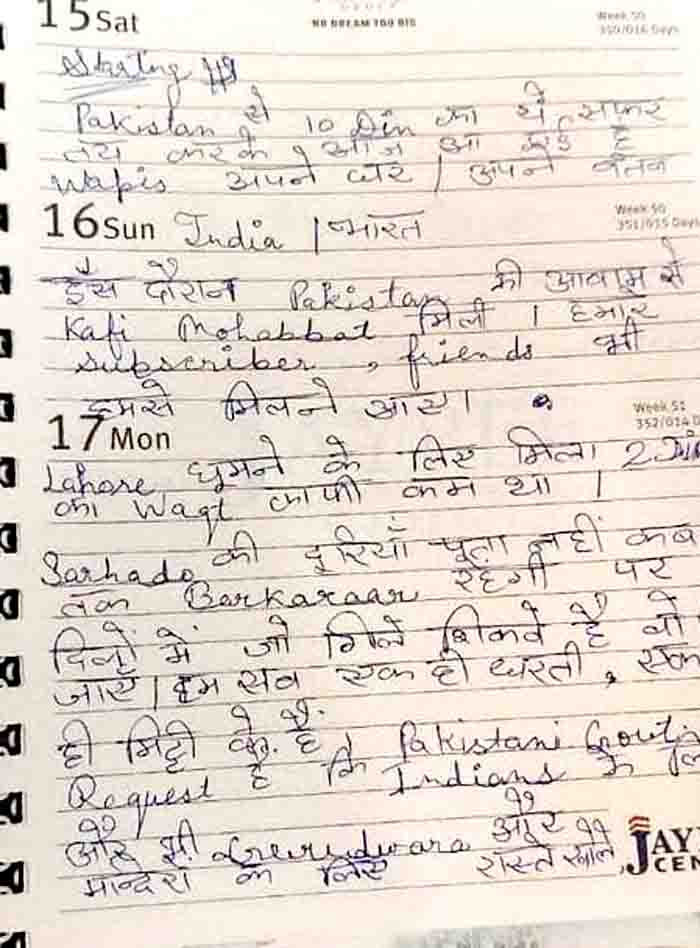 15 Sat
NO DREAM TOO BIG
Week 50
350/016 Days
Pakistan से 10 Din का ये सफर
तय करके, आज आ गई है
Wapis अपने घर | अपने वतन
16 Sun India | भारत
Week 50
351/015 Days
इस दौरान Pakistan की आवाम से
Kafi Mohabbat मिली | हमारे
subscriber, friends भी
हमसे मिलने आए |
17 Mon
Week 51
352/014 D
Lahore घूमने के लिए मिला 2 Din
का Waqt काफी कम था |
Sarhado की दूरियाँ पता नहीं कब
तक Barkaraar रहेगी पर
दिलों में जो गिले शिकवे है वो
जाएँ | हम सब एक ही धरती, एक
ही मिट्टी के है | Pakistani Govt.
Request है कि Indians के लि
और भी Gurudwara और
मन्दिरों के लिए रास्ते खोलें
JAY
CEN